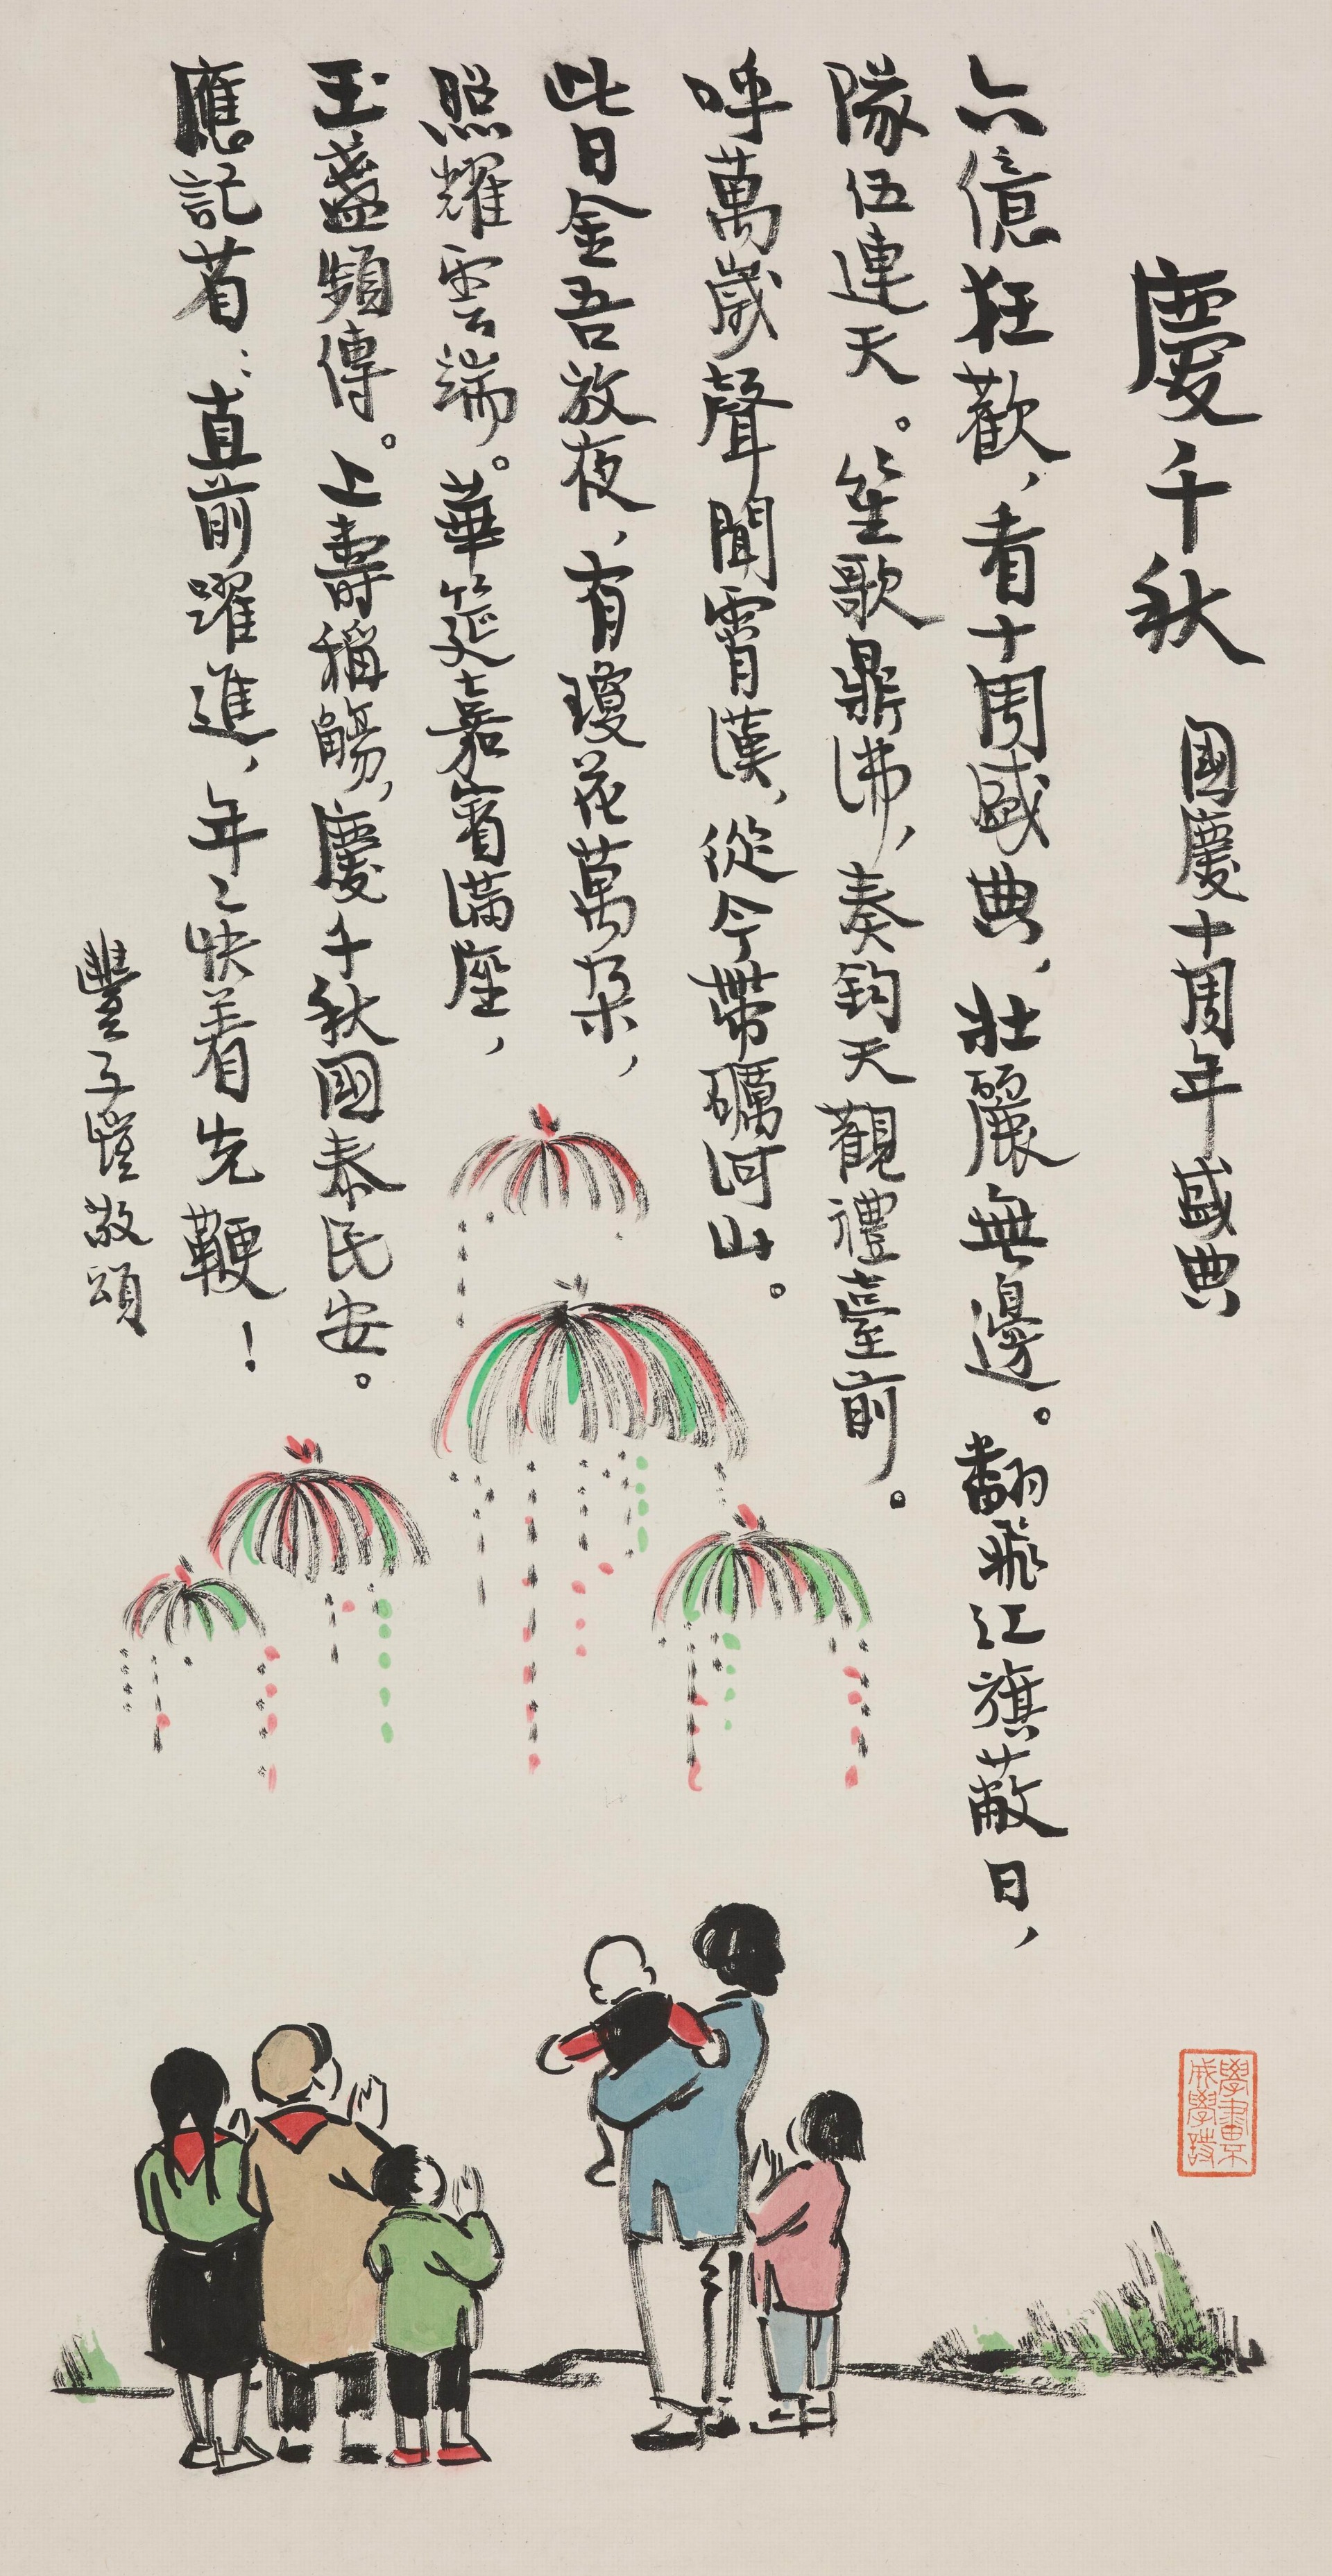 慶千秋 國慶十周年盛典
六億狂歡、看十周盛典、壯麗無邊。翻飛江旗蔽日、
隊伍連天。笙歌鼎沸、奏鈞天觀禮臺前。
呼萬歲聲聞霄漢、從今帶礪河山。
此日金吾放夜、有瓊花萬朶、
照耀雲端。華筵嘉賓滿座、
玉盞頻傳。上壽稱觴、慶千秋國泰民安。
應記省：直前躍進、年々快着先鞭！
豐子愷敬頌
學畫不成學詩